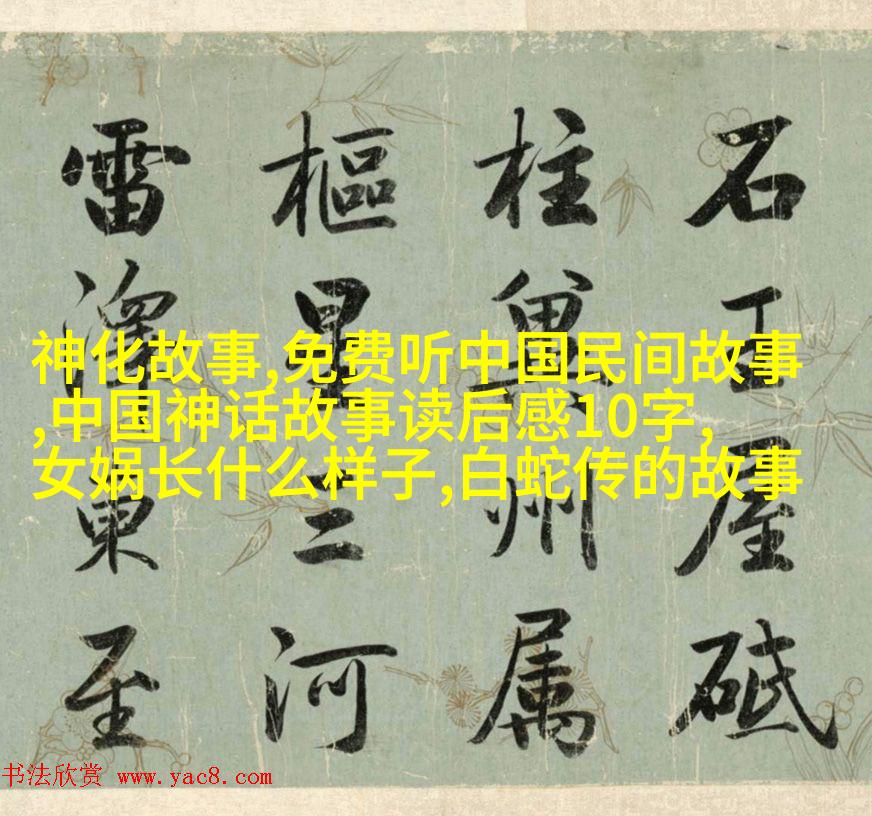 石工屋砥
柱冀州属
樞三河
雷東至
神化故事,免费听中国民间故事
,中国神话故事读后感10字,
女娲长什么样子,白蛇传的故事
书法欣赏 www.yac8.com